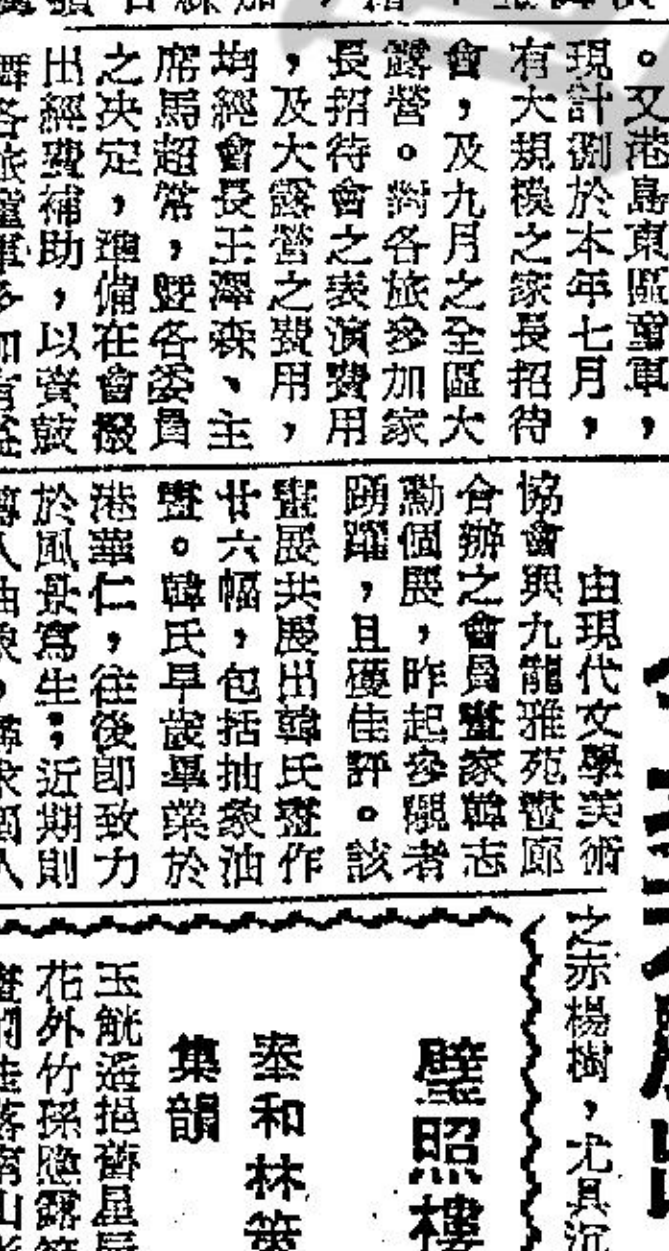 。又港島東區童軍，
現計劃於本年七月，
有大規模之家長招待
會，及九月之全區大
露營。對各旅參加家
長招待會之表演費用
，及大露營之費用，
均經會長王澤森、主
席馬超常，暨各委員
之决定，準備在會撥
出經費補助，以資鼓
由現代文學美術
協會與九龍雅苑畫廊
合辦之會員畫家韓志
勳個展，昨起參觀者
踴躍，且獲佳評。該
畫展共展出韓氏畫作
廿六幅，包括抽象油
畫。韓氏早歲畢業於
港華仁，往後即致力
於風景寫生；近期則
之赤楊樹，尤具沉
璧照樓
奉和林
集韻
玉觥遙挹舊星辰
花外竹孫應露